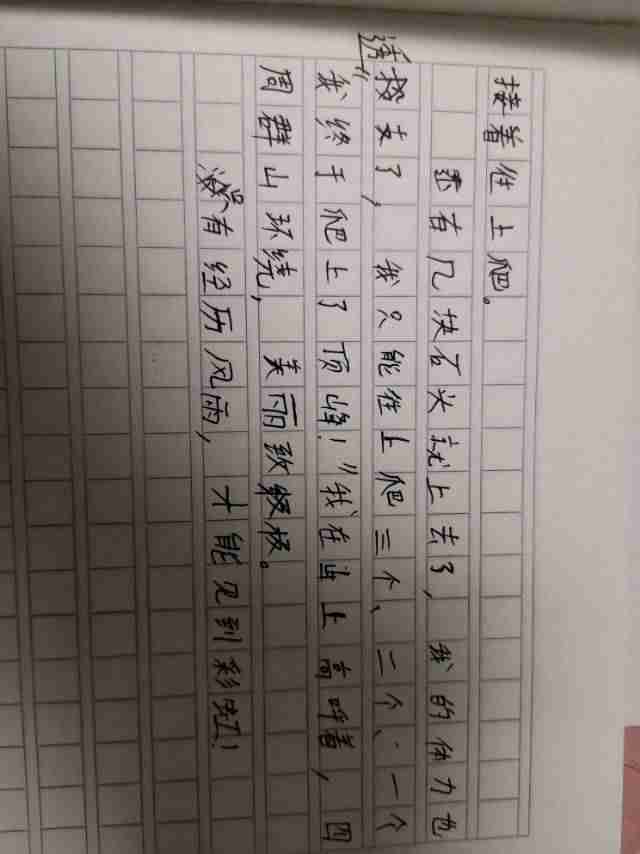 接着往上爬。
还有几块石头就上去了,我的体力也
透投支了,我只能往上爬三个、二个、一个
"我终于爬上了顶峰!"我在山上高呼着,四
周群山环绕,美丽致极。
没有经历风雨,才能见到彩虹!